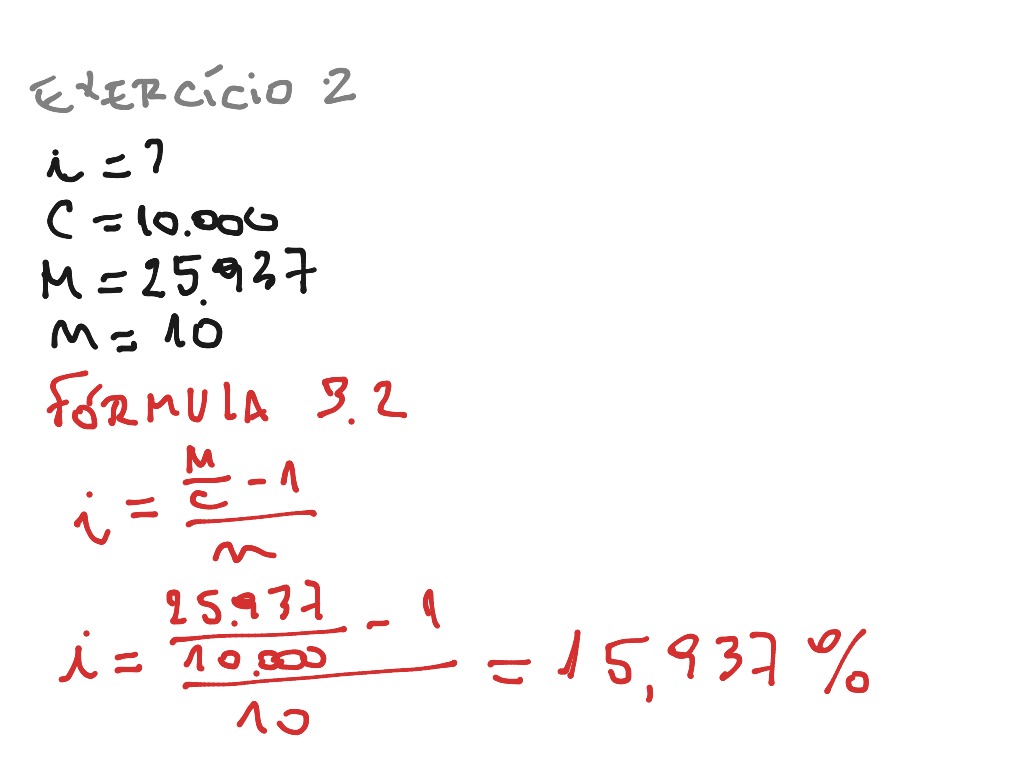 EXERCÍCIO 2
i = ?
C = 10.000
M = 25.937
n = 10
FÓRMULA 3.2
i = (M/C - 1)/n
i = (25.937/10.000 - 1)/10 = 15,937 %